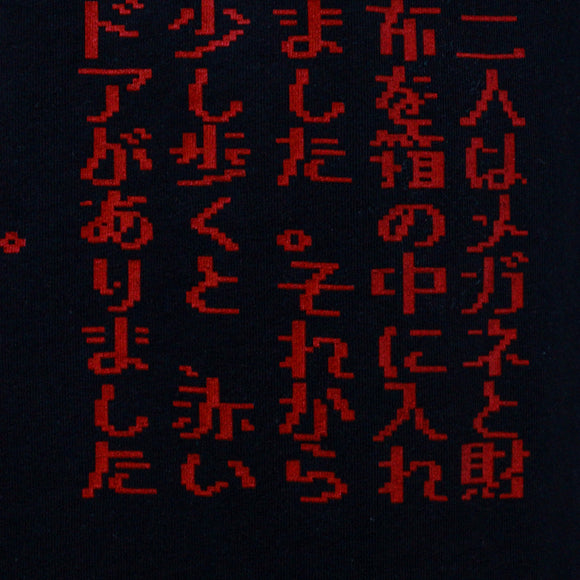 二人はメガネと財
布を箱の中に入れ
ました。それから
少し歩くと、赤い
ドアがありました
。